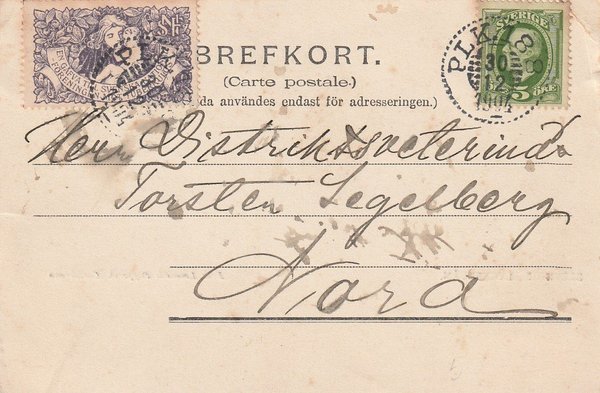 BREFKORT.
(Carte postale.)
da användes endast för adresseringen.)
SVERIGE
5 ÖRE
PLK 88
30
12
1904
Herr Distriktsveterinär
Torsten Segelberg
Nora